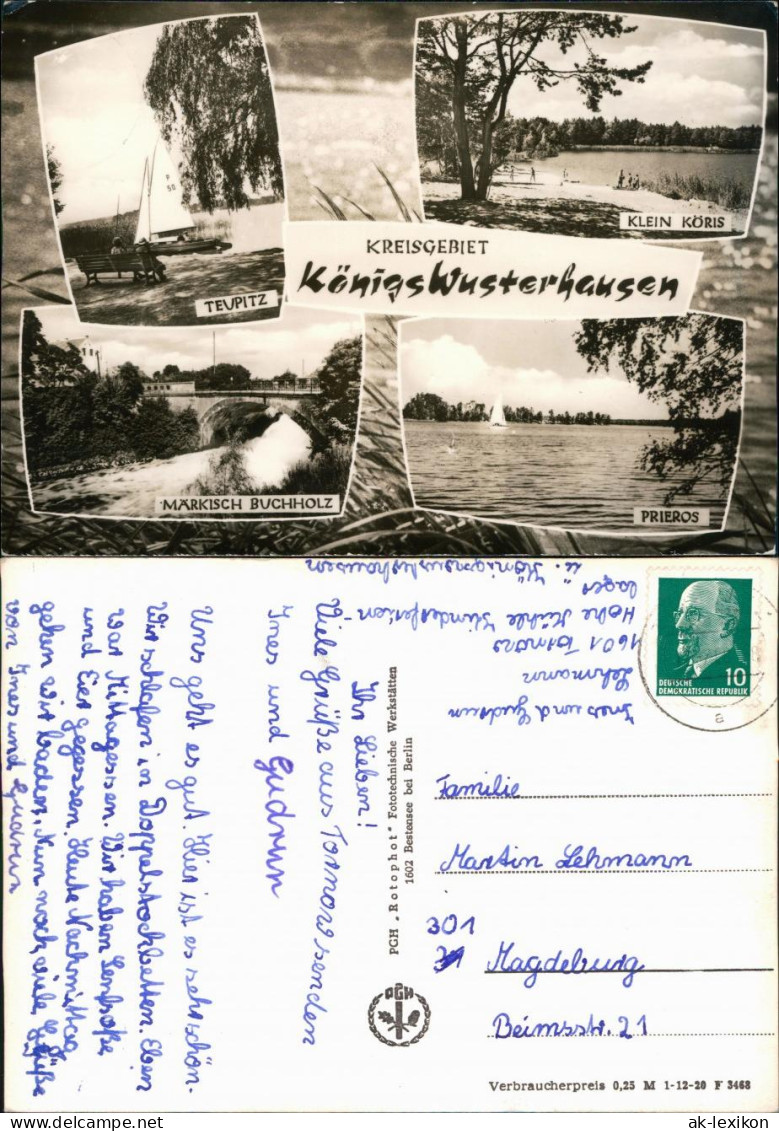 TEUPITZ
KLEIN KÖRIS
KREISGEBIET
Königs Wusterhausen
MÄRKISCH BUCHHOLZ
PRIEROS
Ines und Gudrun
Lehmann
1601 Tornow
Hohe Mühle Kinderferien-
lager
Königswusterhausen
DEUTSCHE
DEMOKRATISCHE REPUBLIK
10
a
Ihr Lieben!
Viele Grüße aus Tornow senden
Ines und Gudrun
Uns geht es gut. Hier ist es sehr schön.
Wir schlafen in Doppelstockbetten. Eben
war Mittagessen. Wir haben Senfsoße
und Eier gegessen. Heute Nachmittag
gehen wir baden. Nun noch viele Grüße
von Ines und Gudrun
PGH „Rotophot" Fototechnische Werkstätten
1602 Bestensee bei Berlin
PGH
Familie
Martin Lehmann
301
Magdeburg
Beimsstr. 21
Verbraucherpreis 0,25 M 1-12-20 F 3468
www.ak-ansichtskarten.de
ak-lexikon